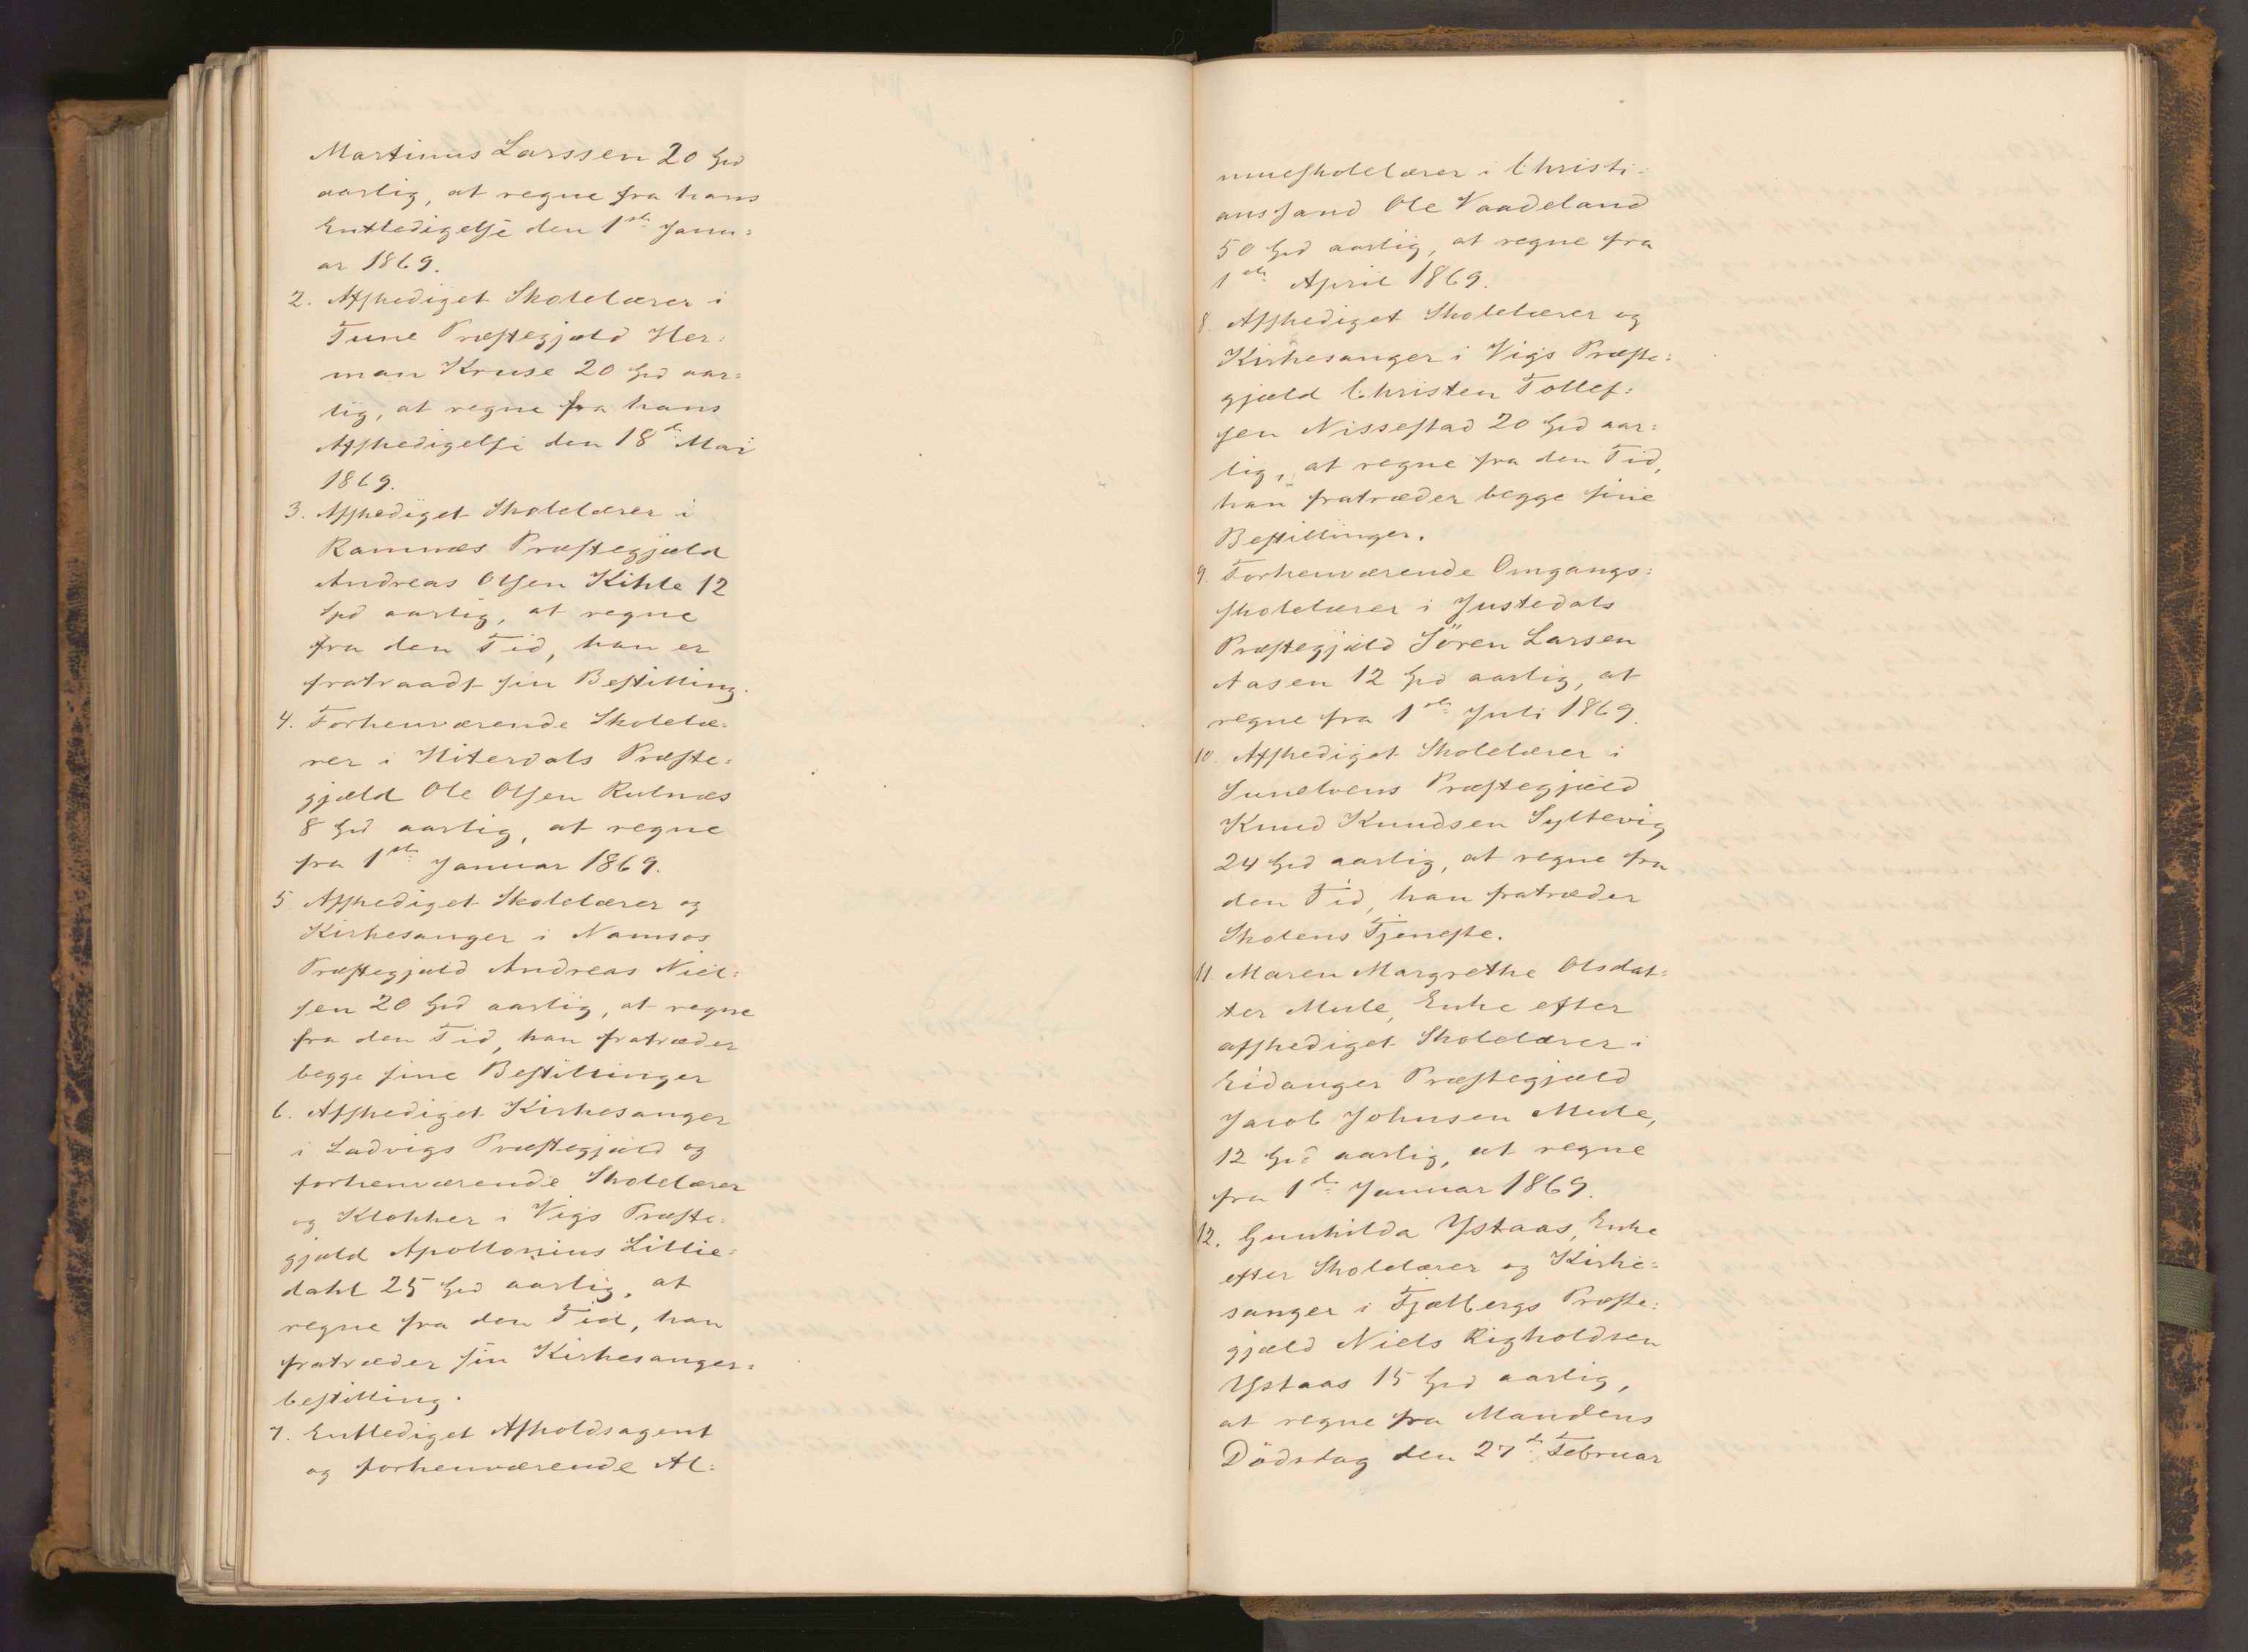 Martinus Larssen 20 Spd
aarlig, at regne fra hans
Entledigelse den 1ste Janu:
ar 1869.
2. Afskediget Skolelærer i
Tune Præstegjæld Her:
man Kruse 20 Spd aar:
lig, at regne fra hans
Afskedigelse den 18de Mai
1869.
3. Afskediget Skolelærer i
Ramnæs Præstegjæld
Andreas Olsen Kihle 12
Spd aarlig, at regne
fra den Tid, han er
fratraadt sin Bestilling.
4. Forhenværende Skolelæ:
rer i Hiterdals Præste:
gjæld Ole Olsen Rulnæs
8 Spd aarlig, at regne
fra 1ste Januar 1869.
5 Afskediget Skolelærer og
Kirkesanger i Namsos
Præstegjæld Andreas Niel:
sen 20 Spd aarlig, at regne
fra den Tid, han fratræder
begge sine Bestillinger
6. Afskediget Kirkesanger
i Ladvigs Præstegjæld og
forhenværende Skolelærer
og Klokker i Vigs Præste:
gjæld Apollonius Lillie:
dahl 25 Spd aarlig, at
regne fra den Tid, han
fratræder sin Kirkesanger:
bestilling.
7. Entlediget Afholdsagent
og forhenværende Al:
mueskolelærer i Christi:
anssand Ole Vaadeland
50 Spd aarlig, at regne fra
1ste April 1869.
8. Afskediget Skolelærer og
Kirkesanger i Vigs Præste:
gjæld Christen Tollef:
sen Nissestad 20 Spd aar:
lig, at regne fra den Tid,
han fratræder begge sine
Bestillinger.
9. Forhenværende Omgangs:
skolelærer i Justedals
Præstegjæld Sören Larsen
Aasen 12 Spd aarlig, at
regne fra 1ste Juli 1869.
10. Afskediget Skolelærer i
Sunelvens Præstegjæld
Knud Knudsen Syltevig
24 Spd aarlig, at regne fra
den Tid, han fratræder
Skolens Tjeneste.
11. Maren Margrethe Olsdat:
ter Mule, Enke efter
afskediget Skolelærer i
Eidanger Præstegjæld
Jacob Johnsen Mule,
12 Spd aarlig, at regne
fra 1ste Januar 1869.
12. Gunhilda Ystaas, Enke
efter Skolelærer og Kirke:
sanger i Fjælbergs Præste:
gjæld Niels Righoldsen
Ystaas 15 Spd aarlig,
at regne fra Mandens
Dödsdag den 27de Februar